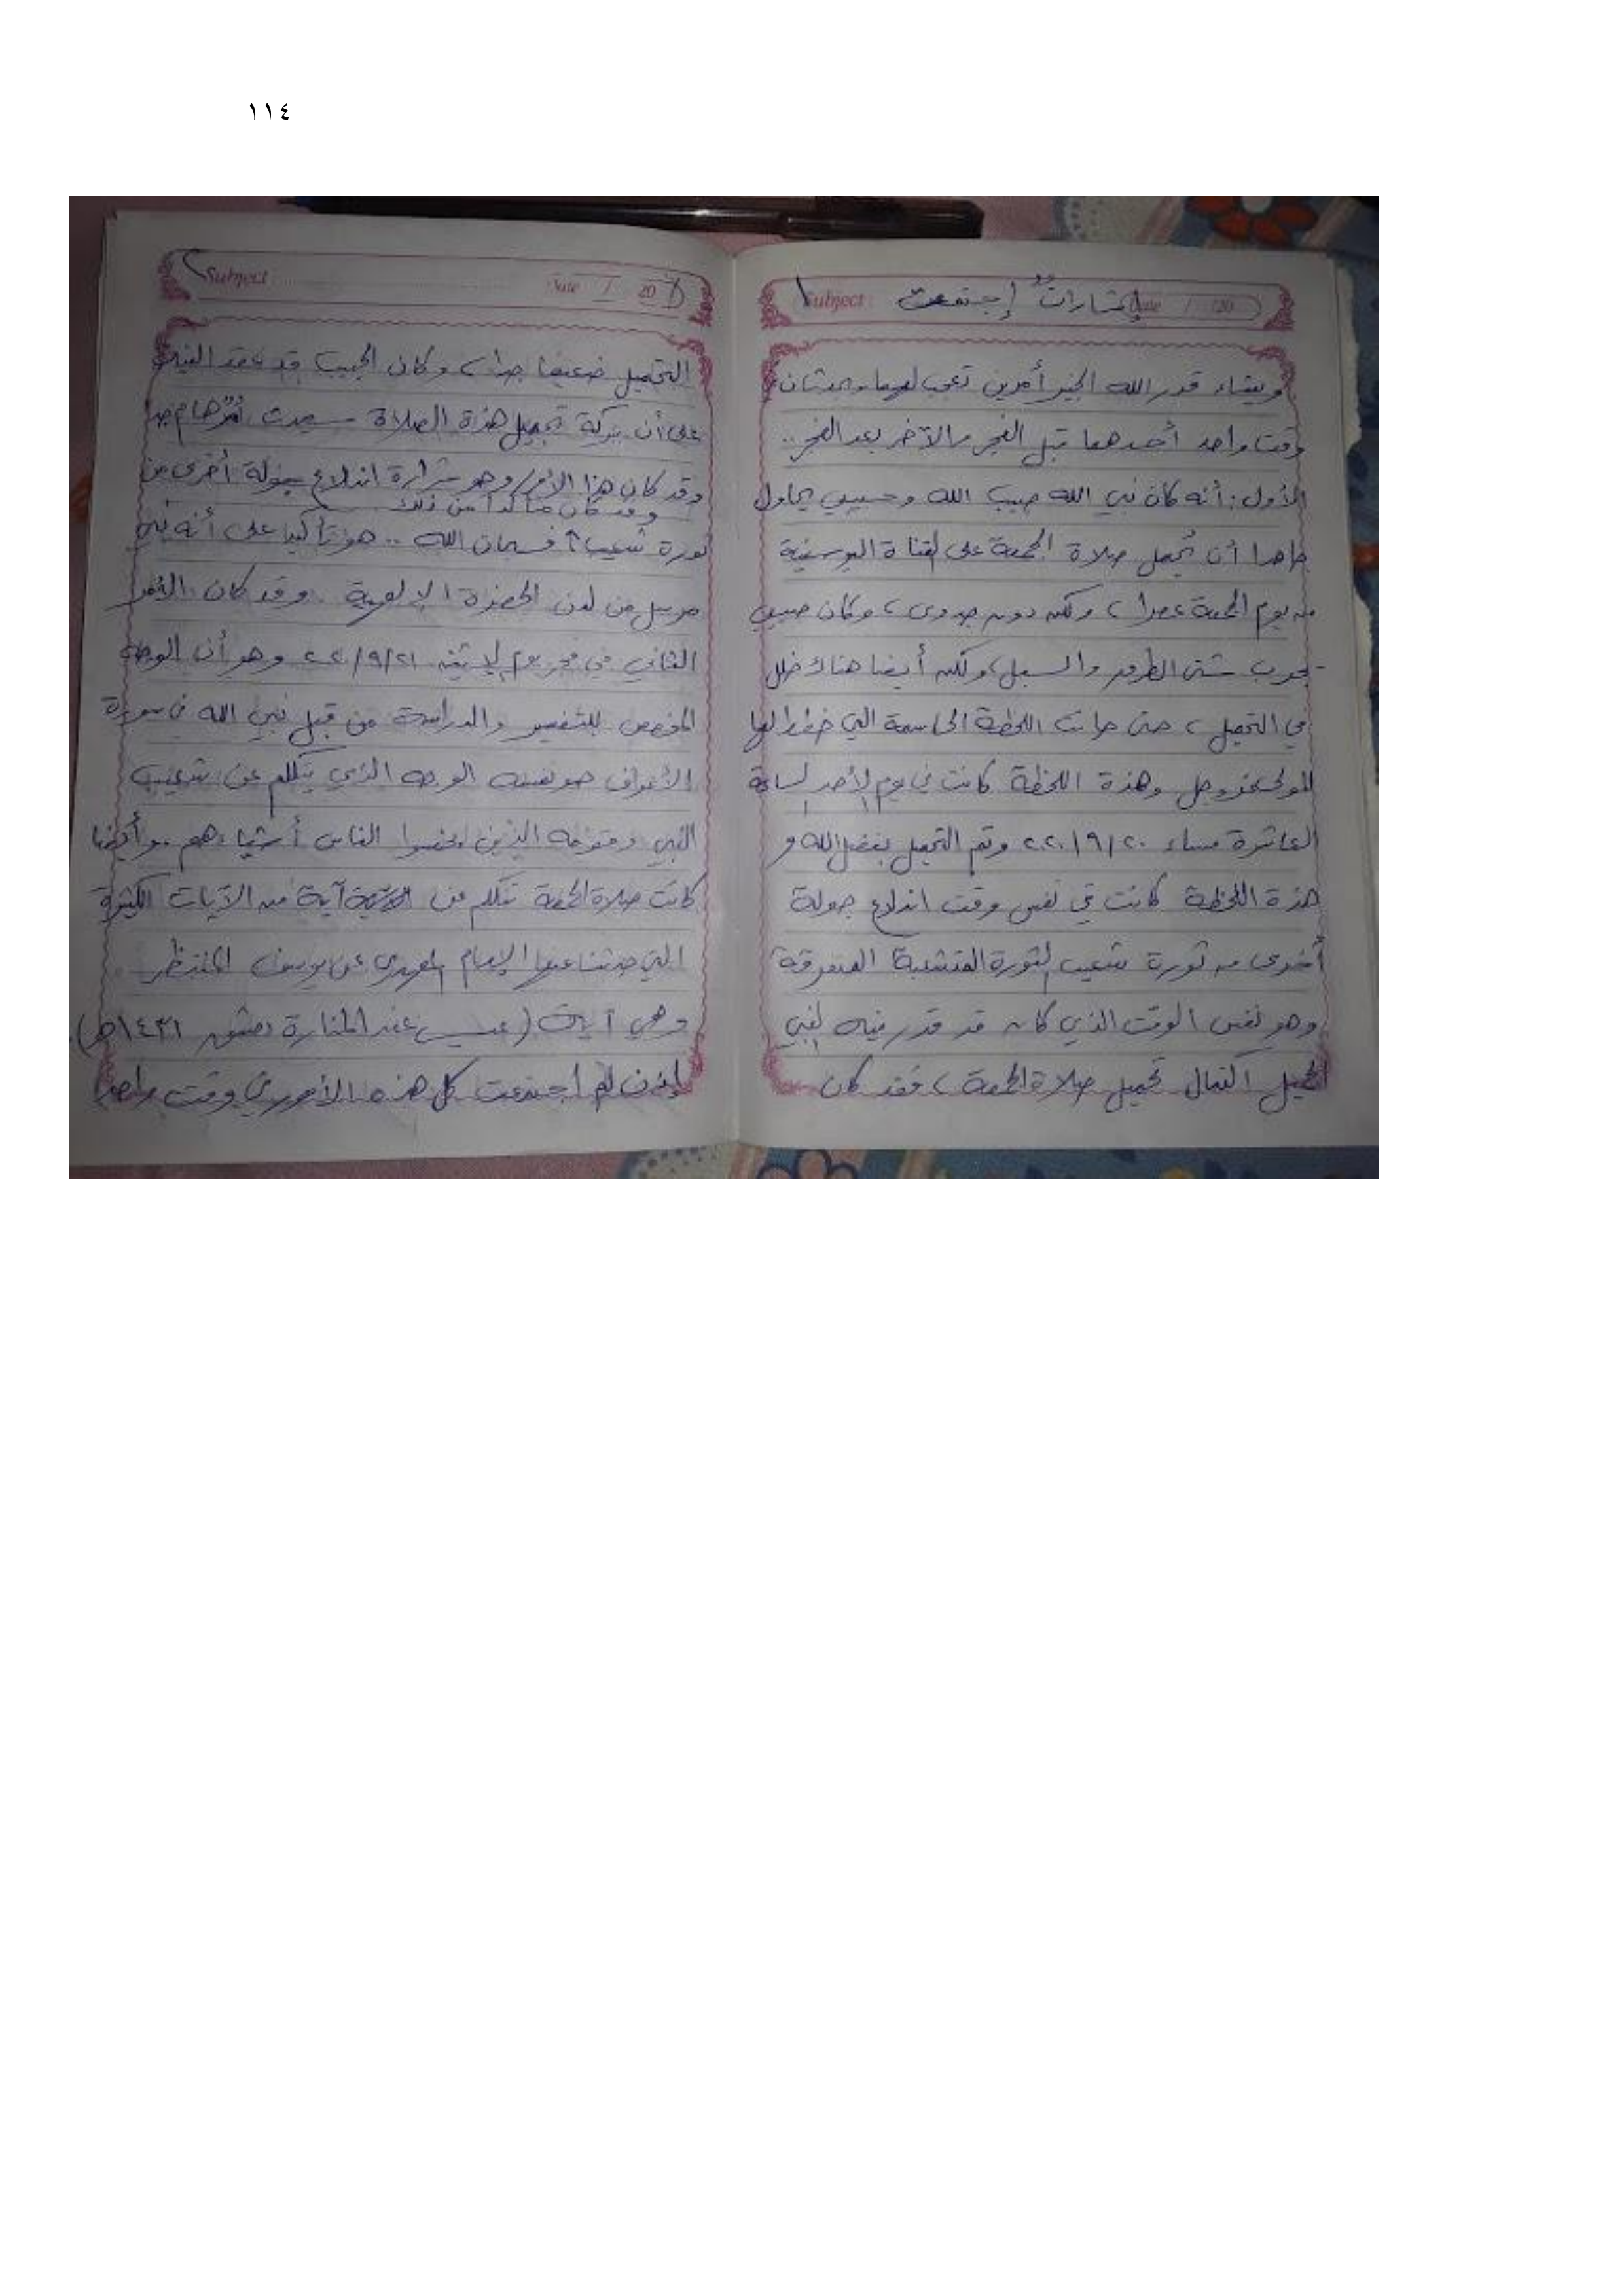 ١١٤
Subject: إشارات إجتمعت Date / /20
ويشاء قدر الله الخير أمرين تعجب لهما وحدثان
وقت واحد أحدهما قبل الفجر والآخر بعد الفجر ..
الأول : أنه كان نبي الله حبيب الله وحبيبي يحاول
جاهدا أن تحمل صلاة الجمعة على القناة اليوسفية
من يوم الجمعة عصرا ، ولكن دون جدوى ، وكان حبيبي
يجرب شتى الطرق والسبل ، ولكن أيضا هناك خلل
في التحميل ، حتى حانت اللحظة الحاسمة التي لها
المولى عز وجل وهذة اللحظة كانت في يوم الأحد الساعة
العاشرة مساء ٢٠/٩/٢٠٢٠ وتم التحميل بفضل الله و
هذة اللحظة كانت في نفس وقت اندلاع جولة
أخرى من ثورة شعيب الثورة المتشعبة المتفرقة
وهو نفس الوقت الذي كان قد قدر فيه لنبي
الجيل اكتمال تحميل صلاة الجمعة ، فقد كان
Subject: Date / 20
التحميل ضعيفا جدا ، وكان الحبيب قد عقد النية
على أن بركة تحميل هذة الصلاة سيحدث هام جدا
وقد كان هذا الأمر وهو شرارة اندلاع جولة أخرى من
وقد كان متأكدا من ذلك
ثورة شعيب فسبحان الله .. هو تأكيدا على أنه نبي
مرسل من لدن الحضرة الإلهية . وقد كان الأمر
الثاني في فجر يوم الإثنين ٢١/٩/٢٠٢٠ وهو أن الوجه
المخصص للتفسير والدراسة من قبل نبي الله في سورة
الأعراف هو نفسه الوجه الذي يتكلم عن شعيب
النبي وقومه الذين بخسوا الناس أشياءهم .. وأيضا
كانت صلاة الجمعة تتكلم عن آية من الآيات الكثيرة
التي حدثنا عنها الإمام المهدي عن يوسف المنتظر
وهي آية (عيسى عند المنارة دمشق ١٤٣١هـ).
إذن لم اجتمعت كل هذه الأمور في وقت واحد